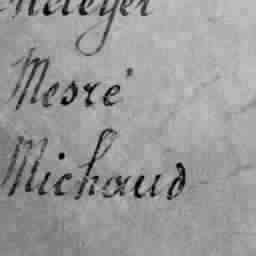 Meleyer
Mesré
Michaud